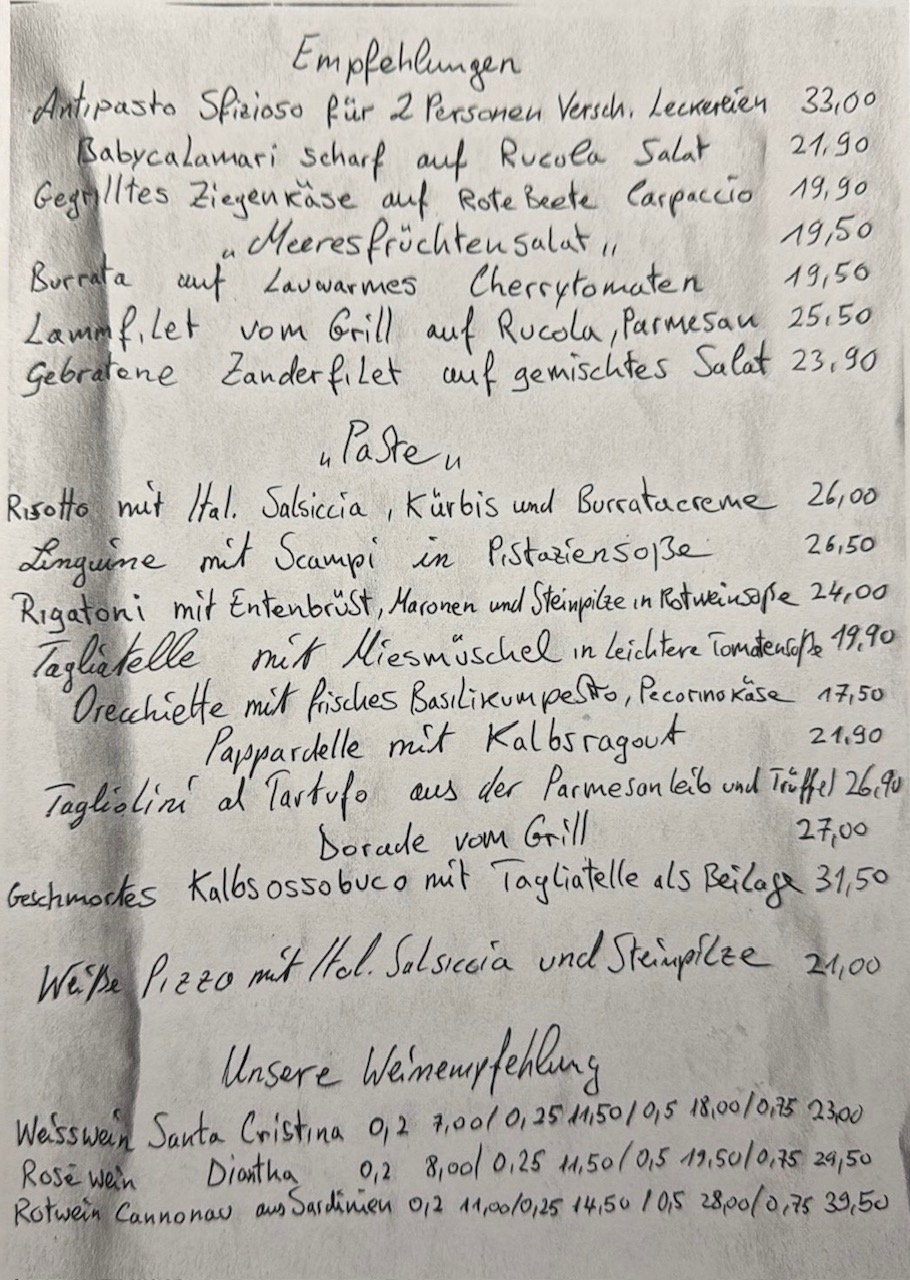 Empfehlungen
Antipasto Sfizioso für 2 Personen Versch. Leckereien 33,00
Babycalamari scharf auf Rucola Salat 21,90
Gegrilltes Ziegenkäse auf Rote Beete Carpaccio 19,90
„Meeresfrüchtensalat" 19,50
Burrata auf Lauwarmes Cherrytomaten 19,50
Lammfilet vom Grill auf Rucola, Parmesan 25,50
Gebratene Zanderfilet auf gemischtes Salat 23,90
„Paste"
Risotto mit Ital. Salsiccia, Kürbis und Burratacreme 26,00
Linguine mit Scampi in Pistaziensoße 26,50
Rigatoni mit Entenbrüst, Maronen und Steinpilze in Rotweinsoße 24,00
Tagliatelle mit Miesmüschel in Leichtere Tomatensoße 19,90
Orecchiette mit frisches Basilikumpesto, Pecorinokäse 17,50
Pappardelle mit Kalbsragout 21,90
Tagliolini al Tartufo aus der Parmesanleib und Trüffel 26,90
Dorade vom Grill 27,00
Geschmortes Kalbsossobuco mit Tagliatelle als Beilage 31,50
Weiße Pizza mit Ital. Salsiccia und Steinpilze 21,00
Unsere Weinempfehlung
Weisswein Santa Cristina 0,2 7,00/0,25 11,50/0,5 18,00/0,75 23,00
Rosé wein Diantha 0,2 8,00/0,25 11,50/0,5 19,50/0,75 29,50
Rotwein Cannonau aus Sardinien 0,2 11,00/0,25 14,50/0,5 28,00/0,75 39,50